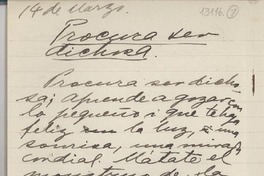 14 de Marzo.
13146. (7)
Procura ser
dichosa.
Procura ser dicho
sa; aprende a gozar con
lo pequeño i que te haga
feliz la luz, una
sonrisa, una mirada
cordial. Mátate el
de la